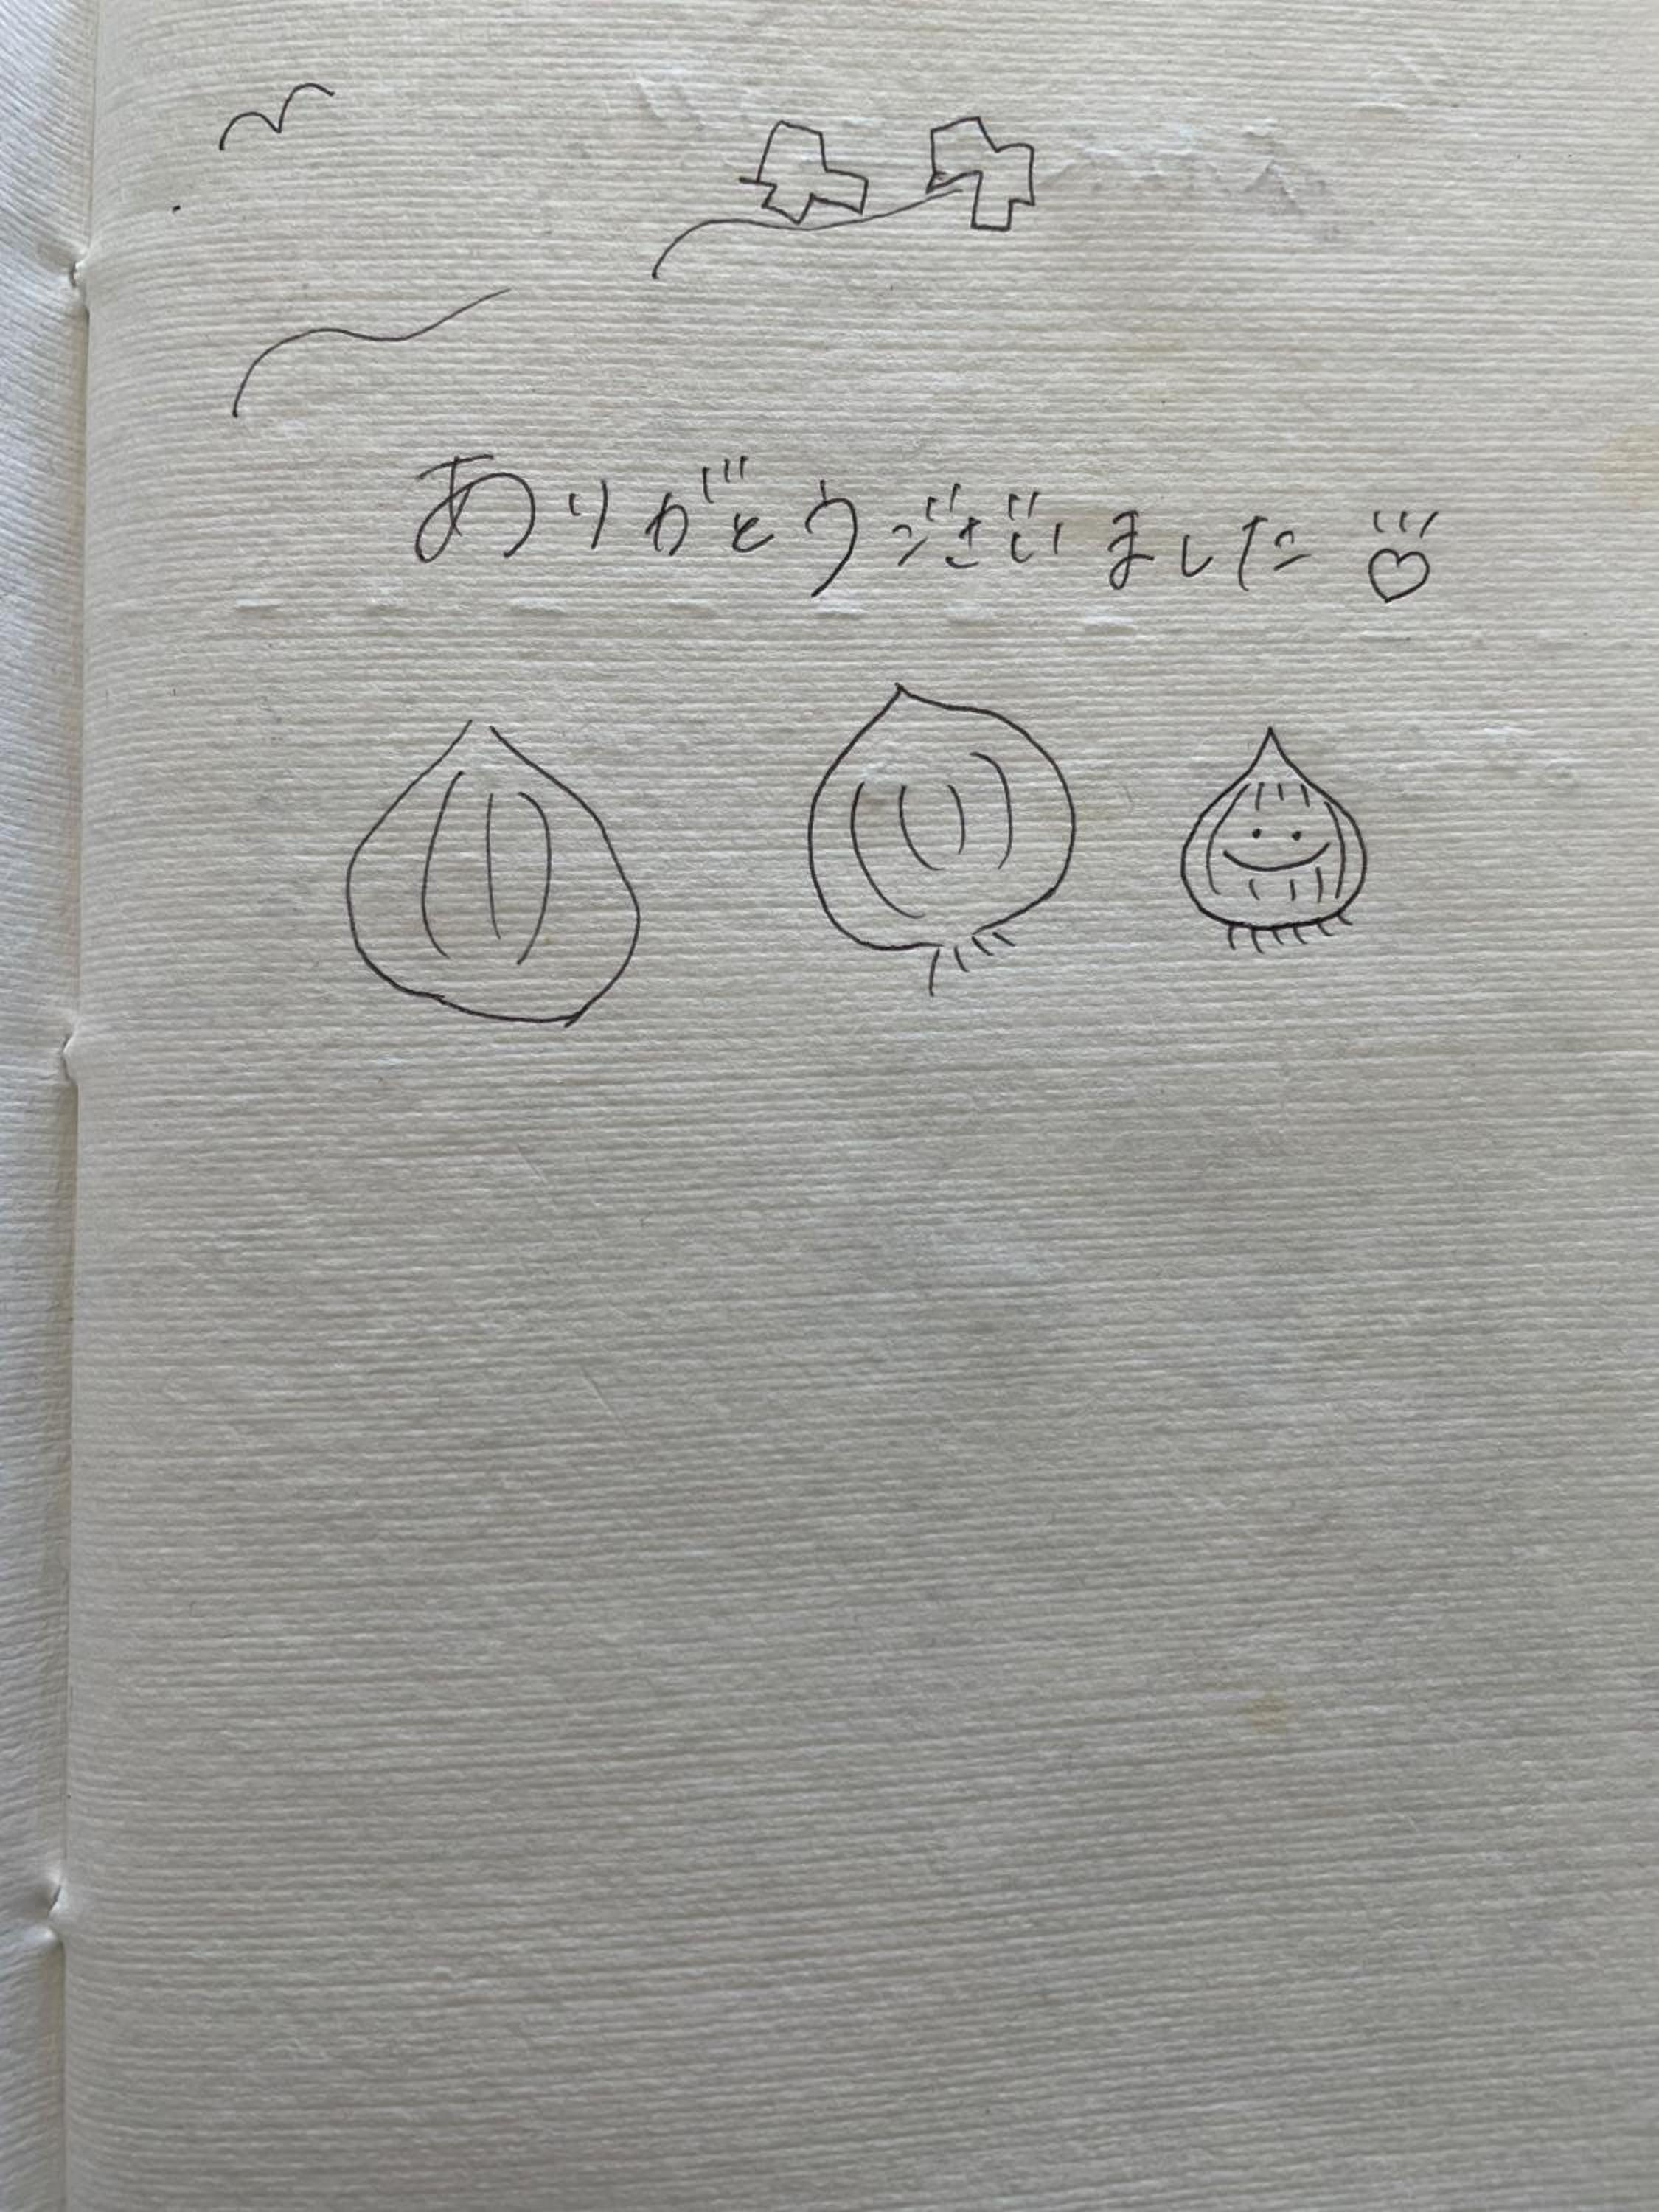 ありがとうございました♡